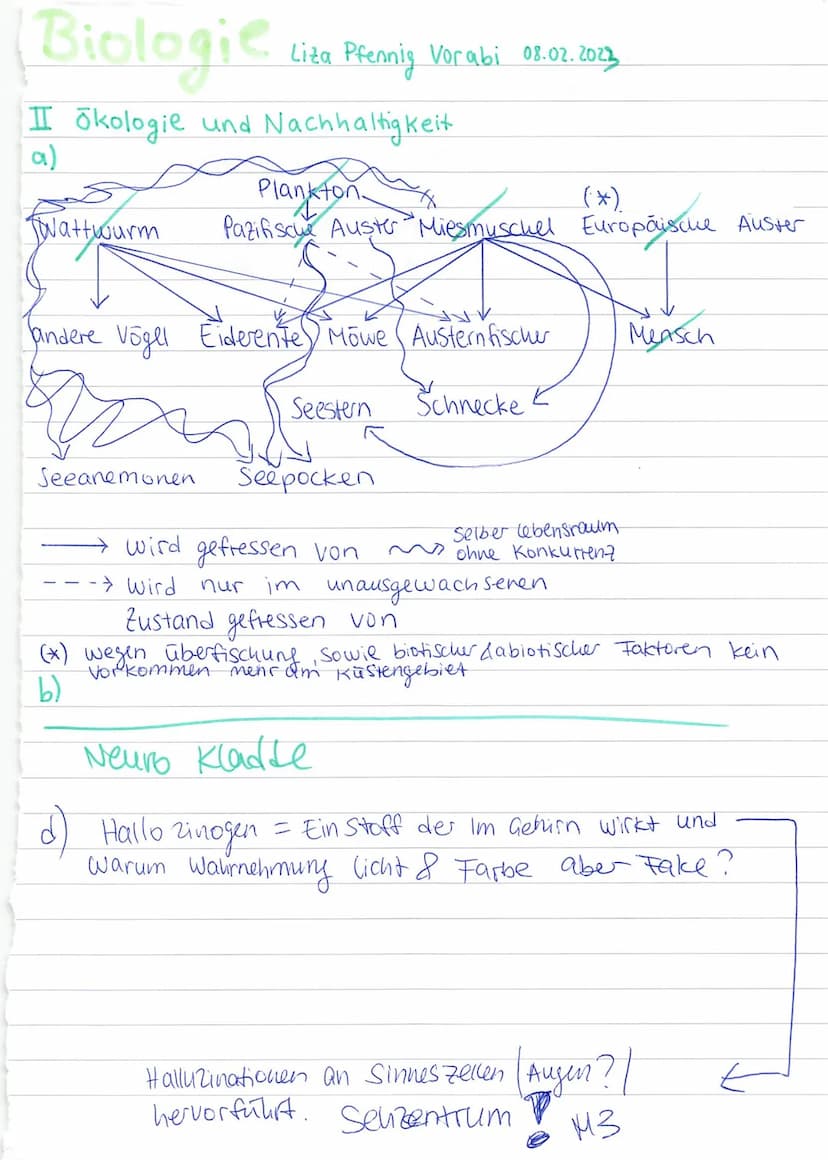 Biologie Liza Pfennig Vorabi 08.02.2023
II Ökologie und Nachhaltigkeit
a)
Plankton
(*)
Wattwurm Pazifische Auster Miesmuschel Europäische Auster
andere Vögel Eiderente Möwe Austernfischer Mensch
Seestern Schnecke
Seeanemonen Seepocken
wird gefressen von selber Lebensraum
ohne Konkurrenz
wird nur im unausgewachsenen
Zustand gefressen von
(*) wegen überfischung, sowie biotischer & abiotischer Faktoren kein
vorkommen mehr am Küstengebiet
b)
Neuro Kladde
d) Hallo zinogen = Ein Stoff der im Gehirn wirkt und
warum Wahrnehmung licht & Farbe aber Fake?
Halluzinationen an Sinneszellen (Augen?)
hervorführt. Sehzentrum ! M3